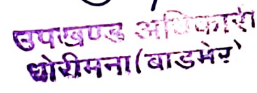 उपखण्ड अधिकारी
धोरीमना (बाडमेर)